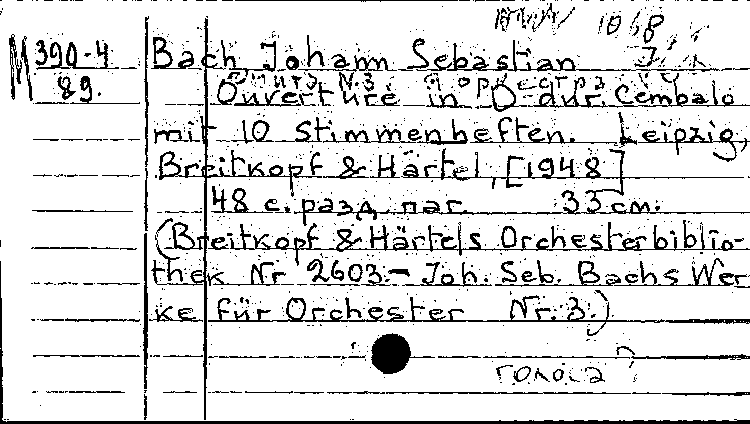 1068
М 390-4 Bach Johann Sebastian
89. Сюита N.3 для оркестра
Ouverture in D-dur. Cembalo
mit 10 Stimmenheften. Leipzig,
Breitkopf & Härtel, [1948]
48 с. разд. паг. 33 см.
(Breitkopf & Härtels Orchesterbiblio-
thek Nr 2603.- Joh. Seb. Bachs Wer
ke für Orchester Nr. 3.)
голоса